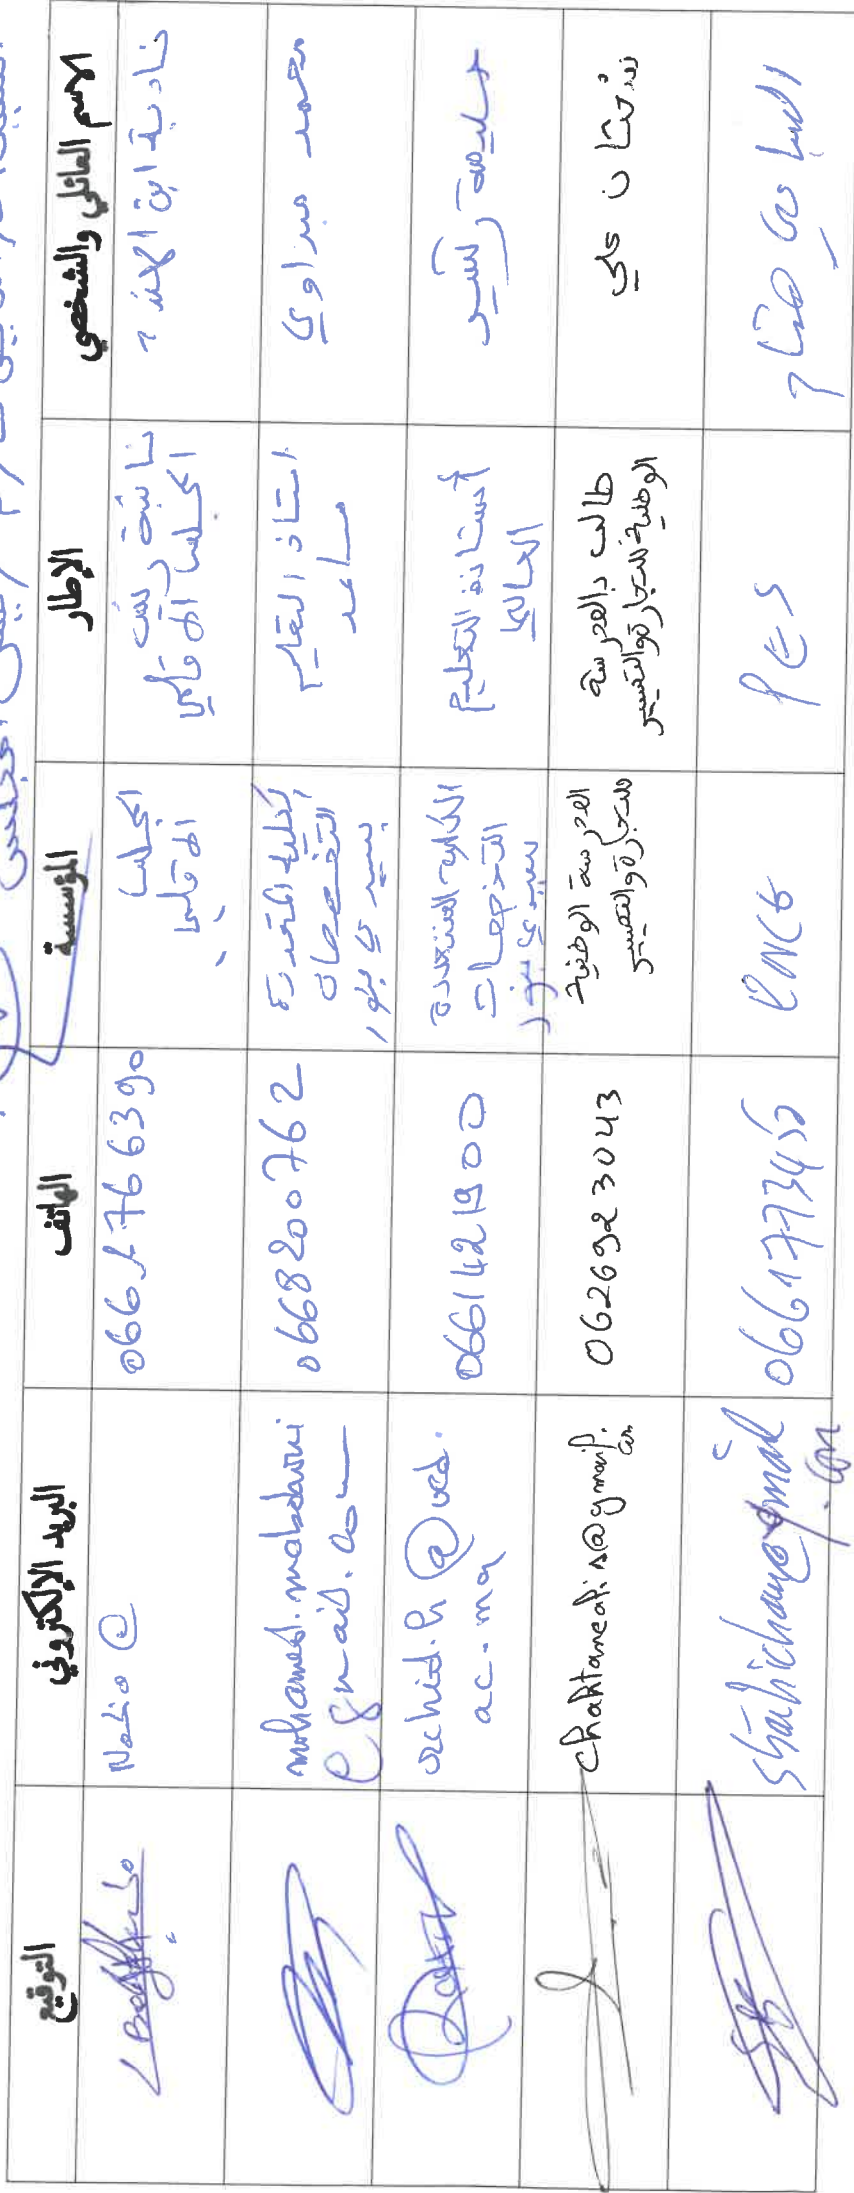 الاسم العائلي والشخصي
الإطار
المؤسسة
الهاتف
البريد الإلكتروني
التوقيع
نادية ابن
نائبة
المجلس الإقليمي
المجلس
0661766390
Nadia @
محمد مبداوي
استاذ التعليم
مساعد
الكلية المتعددة
التخصصات
بسيدي بنور
0668200762
mohamed.mabdaoui
@gmail.com
حليمة رشيد
أستاذة التعليم
العالي
الكلية المتعددة
التخصصات
سيدي بنور
0661421900
rachid.h@ucd.
ac.ma
شختان علي
طالب بالمدرسة
الوطنية للتجارة والتسيير
المدرسة الوطنية
للتجارة والتسيير
0626923043
chaktaneali.s@gmail.
com
PES
ENCG
0661773456
.com